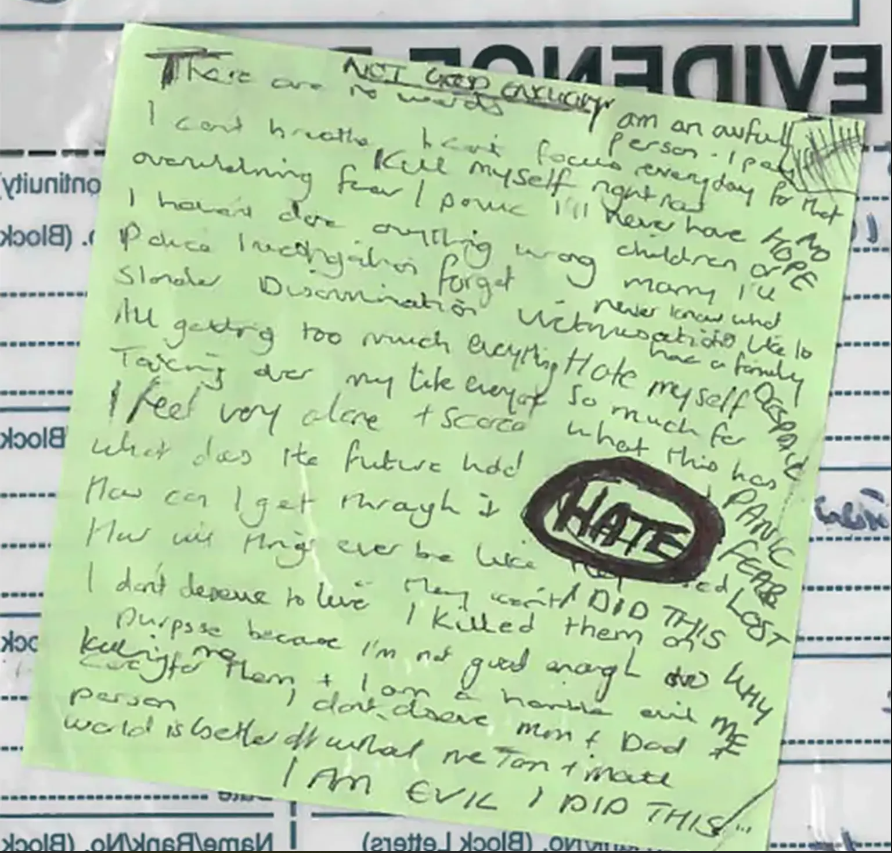 EVIDENCE
NOT GOOD ENOUGH
There are no words
I am an awful person. I pay everyday for that
I can't breathe I can't focus
Kill myself right now
overwhelming fear / panic I'll never have children or marry I'll never know what
NO HOPE
I haven't done anything wrong
Police Investigation forget
Slander Discrimination Victimisation
like to have a family
All getting too much everything
Hate myself so much for what this has
Taking over my life everyday
DESPAIR
I feel very alone + scared
What does the future hold
PANIC
How can I get through it
HATE
FEAR
How will things ever be like
LOST
I don't deserve to live
I DID THIS
I killed them on purpose because I'm not good enough to care for them + I am a horrible evil person
WHY ME
Killing me
I don't deserve mum + Dad
world is better off without me Tom + mate
I AM EVIL I DID THIS
Name/Rank/No. (Block Letters)